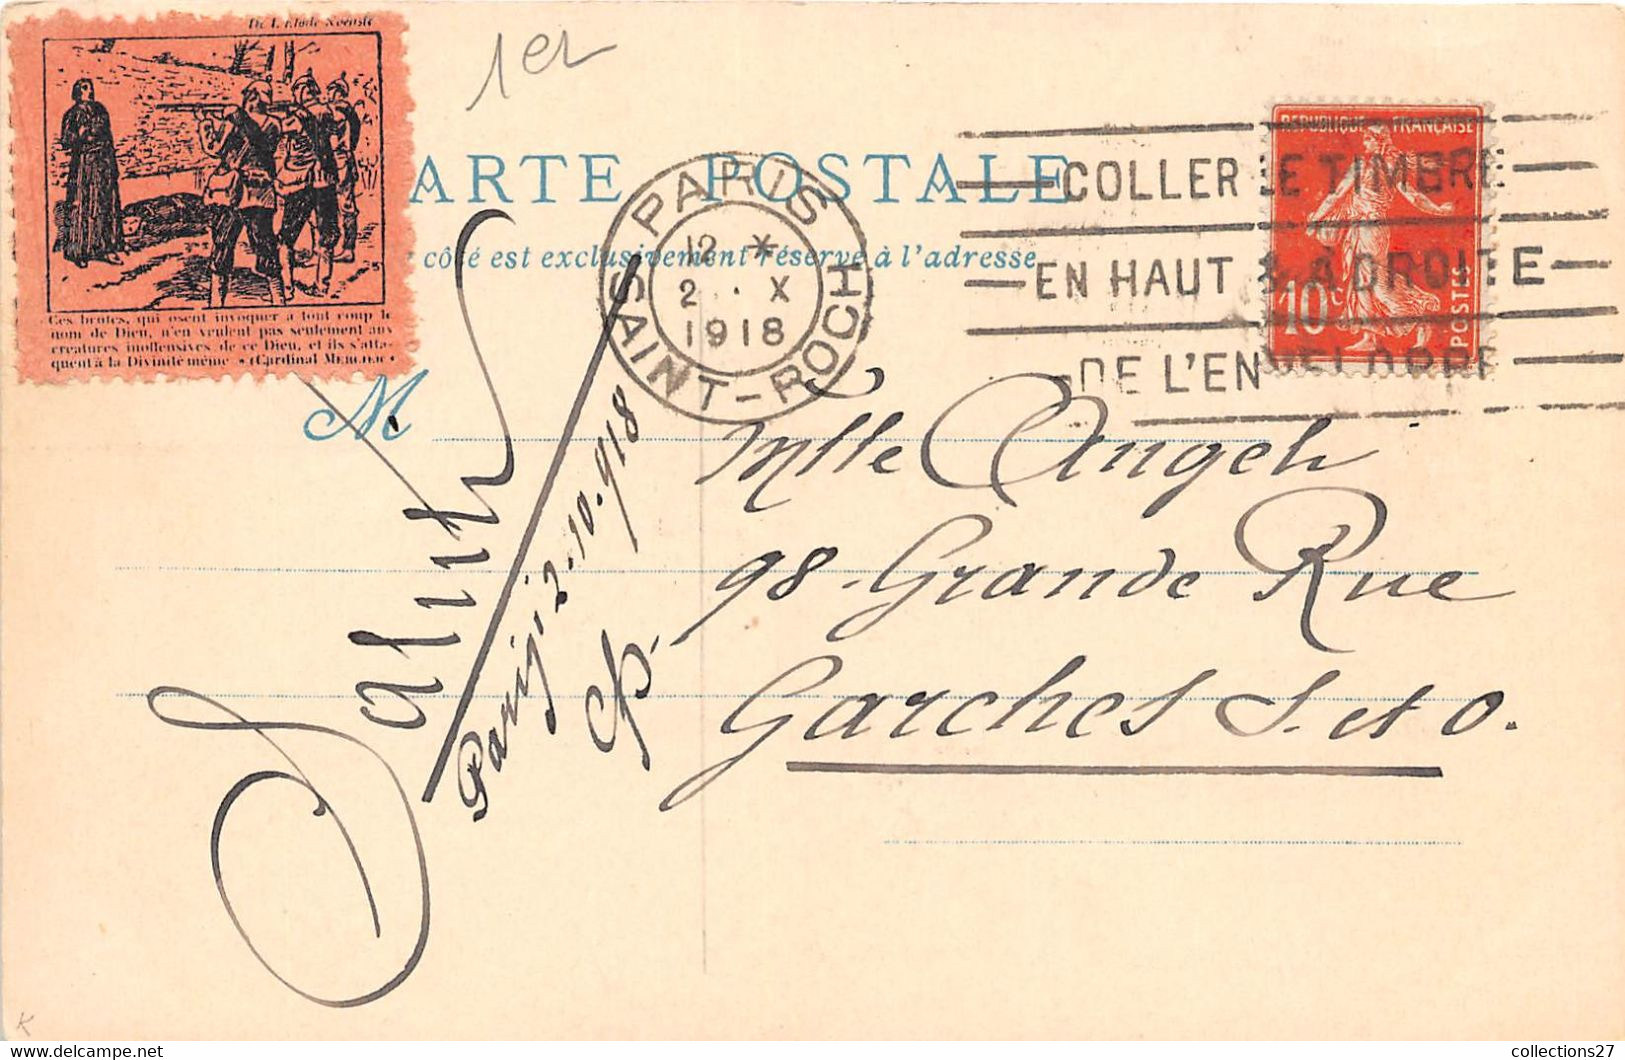 1er
CARTE POSTALE
côté est exclusivement réservé à l'adresse
Ces brutes, qui osent invoquer a tout coup le
nom de Dieu, n'en veulent pas seulement aux
creatures inoffensives de ce Dieu, et ils s'atta-
quent à la Divinité même • (Cardinal MERCIER) •
PARIS
12 *
2 . X
1918
SAINT-ROCH
COLLER LE TIMBRE
EN HAUT & A DROITE
DE L'ENVELOPPE
REPUBLIQUE FRANÇAISE
10c
POSTES
M
Mlle Angeli
98. Grande Rue
Garches S. et O.
Salut
Paris 2.10.918
K
collections27